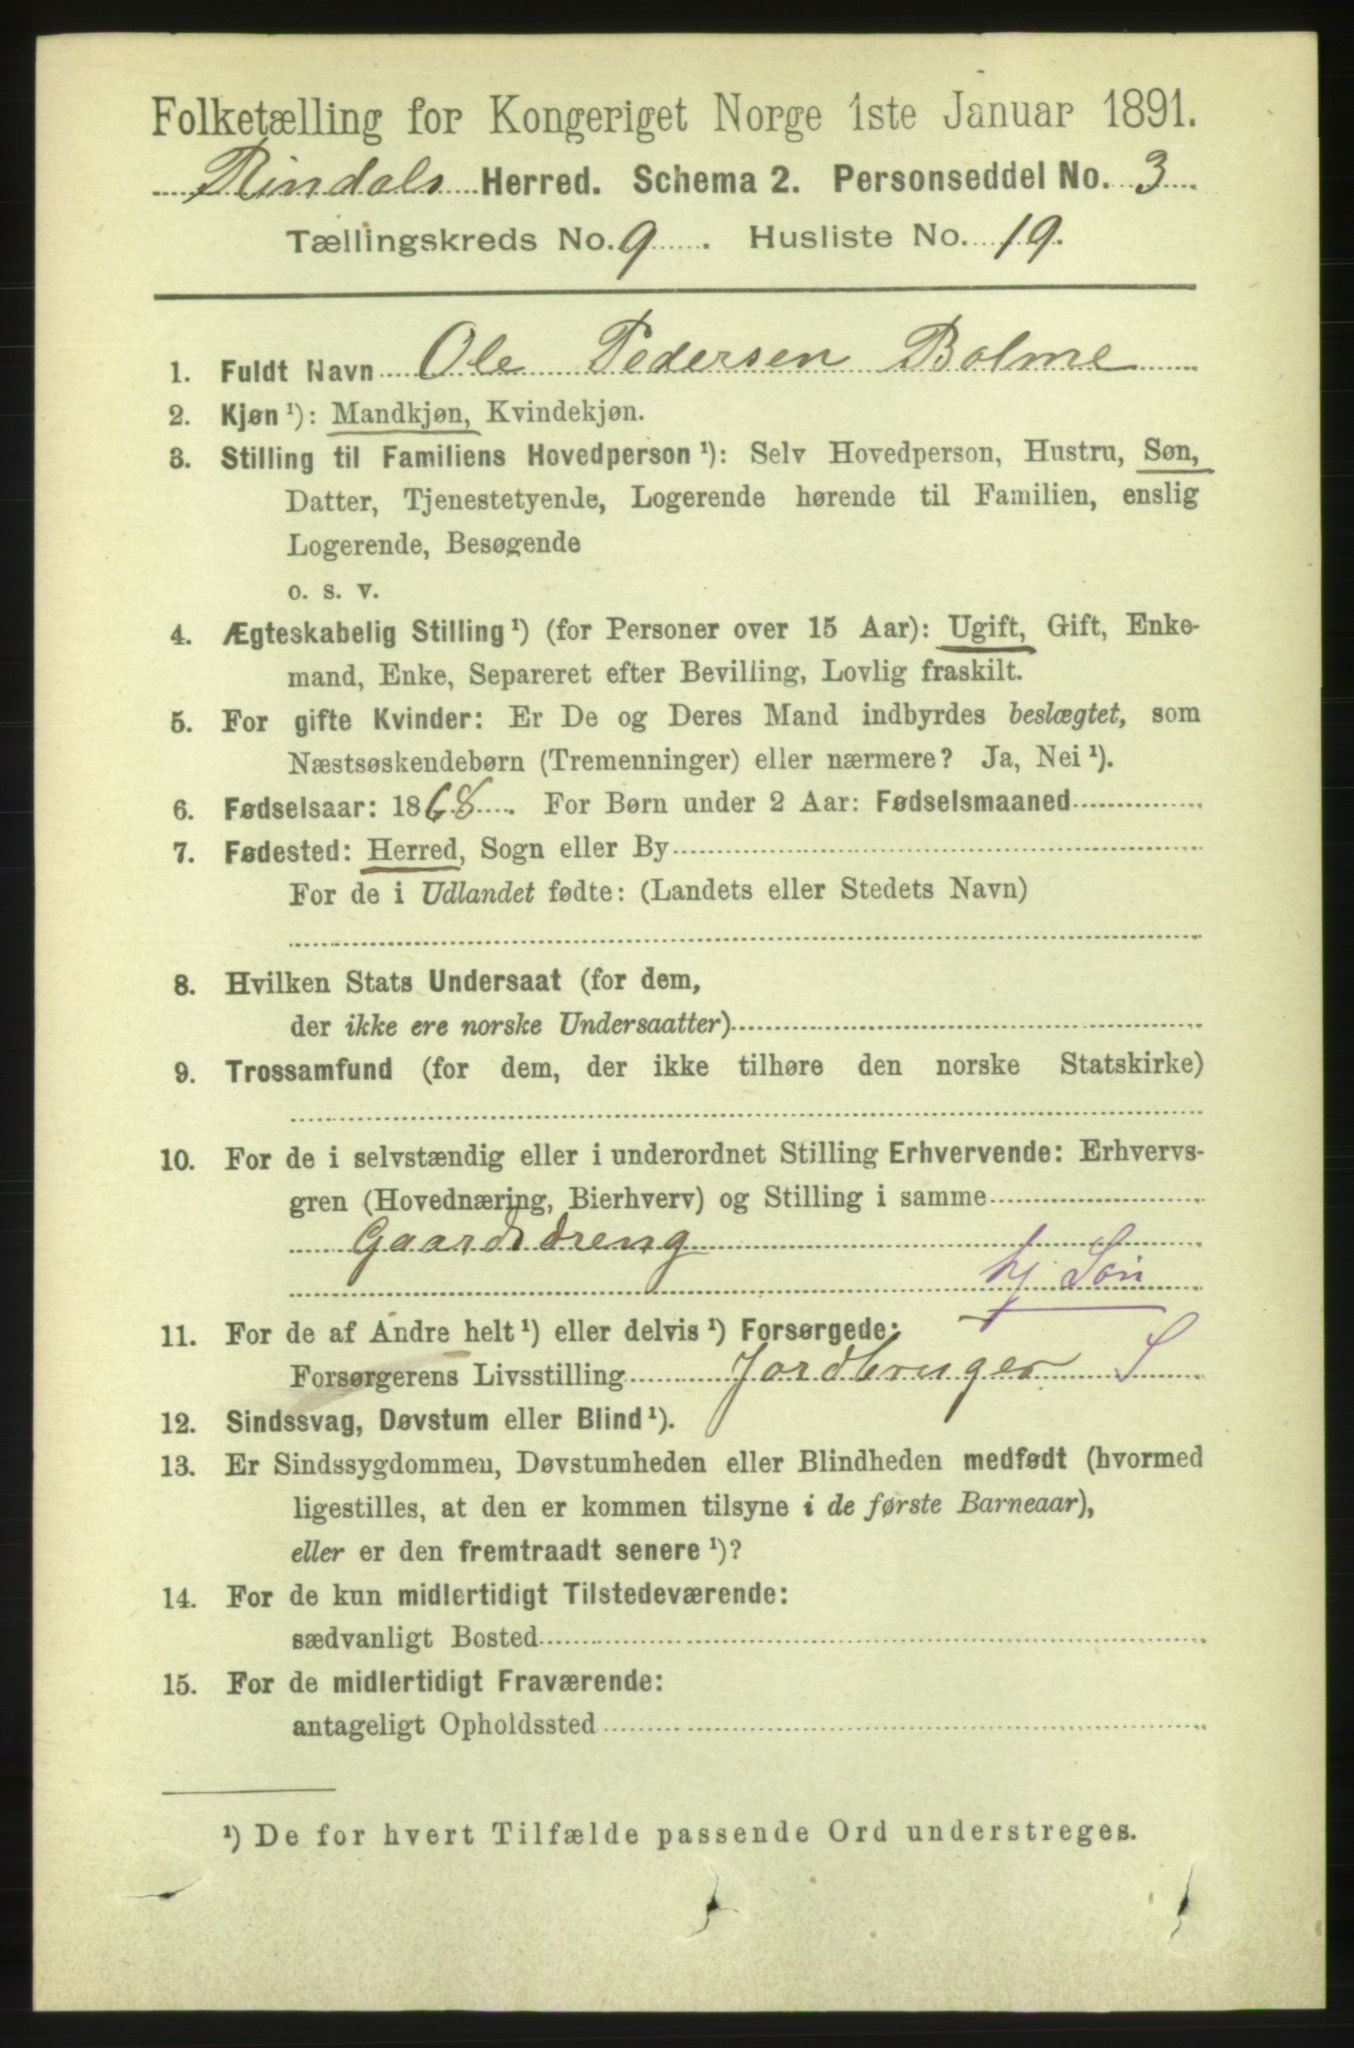 Folketælling for Kongeriget Norge 1ste Januar 1891.
Rindals Herred. Schema 2. Personseddel No. 3
Tællingskreds No. 9. Husliste No. 19.
1. Fuldt Navn Ole Pedersen Bolme
2. Kjøn ¹): Mandkjøn, Kvindekjøn.
3. Stilling til Familiens Hovedperson ¹): Selv Hovedperson, Hustru, Søn,
Datter, Tjenestetyende, Logerende hørende til Familien, enslig
Logerende, Besøgende
o. s. v.
4. Ægteskabelig Stilling ¹) (for Personer over 15 Aar): Ugift, Gift, Enke-
mand, Enke, Separeret efter Bevilling, Lovlig fraskilt.
5. For gifte Kvinder: Er De og Deres Mand indbyrdes beslægtet, som
Næstsøskendebørn (Tremenninger) eller nærmere? Ja, Nei ¹).
6. Fødselsaar: 1868. For Børn under 2 Aar: Fødselsmaaned
7. Fødested: Herred, Sogn eller By
For de i Udlandet fødte: (Landets eller Stedets Navn)
8. Hvilken Stats Undersaat (for dem,
der ikke ere norske Undersaatter)
9. Trossamfund (for dem, der ikke tilhøre den norske Statskirke)
10. For de i selvstændig eller i underordnet Stilling Erhvervende: Erhvervs-
gren (Hovednæring, Bierhverv) og Stilling i samme
Gaardsdreng
hj Søn
11. For de af Andre helt ¹) eller delvis ¹) Forsørgede:
Forsørgerens Livsstilling Jordbruger S
12. Sindssvag, Døvstum eller Blind ¹).
13. Er Sindssygdommen, Døvstumheden eller Blindheden medfødt (hvormed
ligestilles, at den er kommen tilsyne i de første Barneaar),
eller er den fremtraadt senere ¹)?
14. For de kun midlertidigt Tilstedeværende:
sædvanligt Bosted
15. For de midlertidigt Fraværende:
antageligt Opholdssted
¹) De for hvert Tilfælde passende Ord understreges.